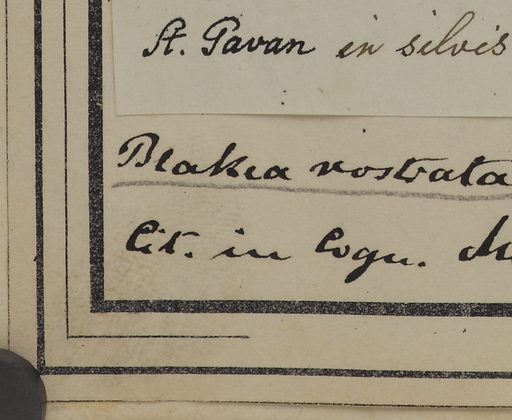 St. Pavan in silvis
Blakea rostrata
Cit. in Cogn.